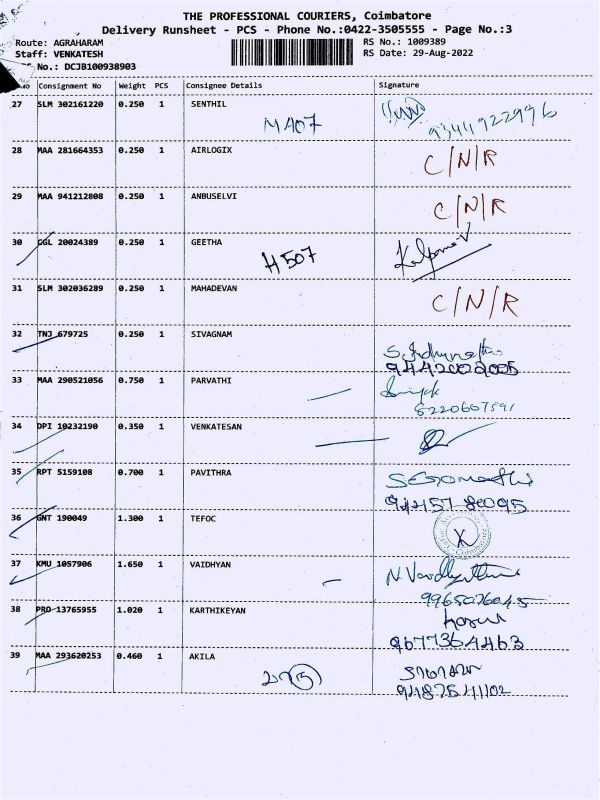 THE PROFESSIONAL COURIERS, Coimbatore
Delivery Runsheet - PCS - Phone No.:0422-3505555 - Page No.:3
Route: AGRAHARAM RS No.: 1009389
Staff: VENKATESH RS Date: 29-Aug-2022
No.: DCJB100938903
No Consignment No Weight PCS Consignee Details Signature
27 SLM 302161220 0.250 1 SENTHIL
M A07 9344922996
28 MAA 281664353 0.250 1 AIRLOGIX C/N/R
29 MAA 941212808 0.250 1 ANBUSELVI C/N/R
30 CGL 20024389 0.250 1 GEETHA
H 507
31 SLM 302036289 0.250 1 MAHADEVAN C/N/R
32 TNJ 679725 0.250 1 SIVAGNAM
9442002005
33 MAA 290521056 0.750 1 PARVATHI
8220607591
34 DPI 10232190 0.350 1 VENKATESAN
35 RPT 5159108 0.700 1 PAVITHRA
94215780095
36 GNT 190049 1.300 1 TEFOC
37 KMU 1057906 1.650 1 VAIDHYAN
9965026045
38 PRO 13765955 1.020 1 KARTHIKEYAN
9677364463
39 MAA 293620253 0.460 1 AKILA
9487541102